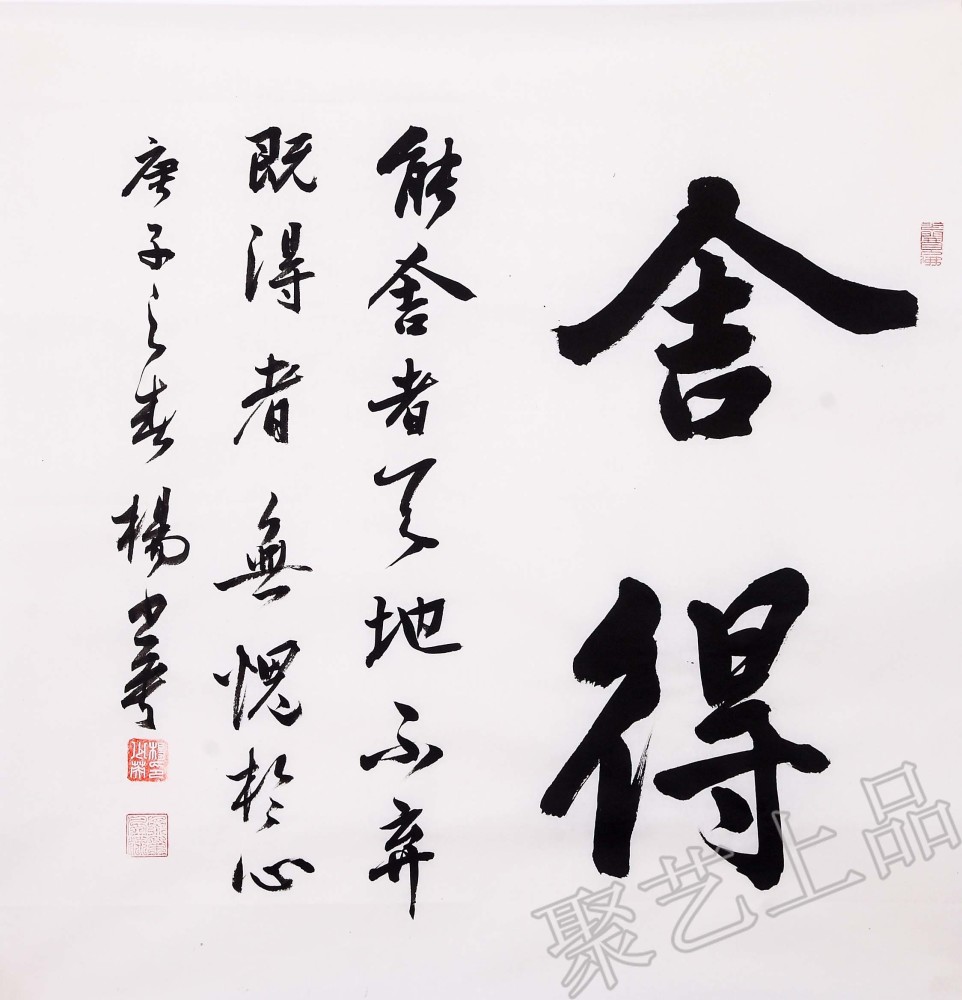 舍得
能舍者天地不弃
既得者無愧於心
庚子之春楊
聚艺上品